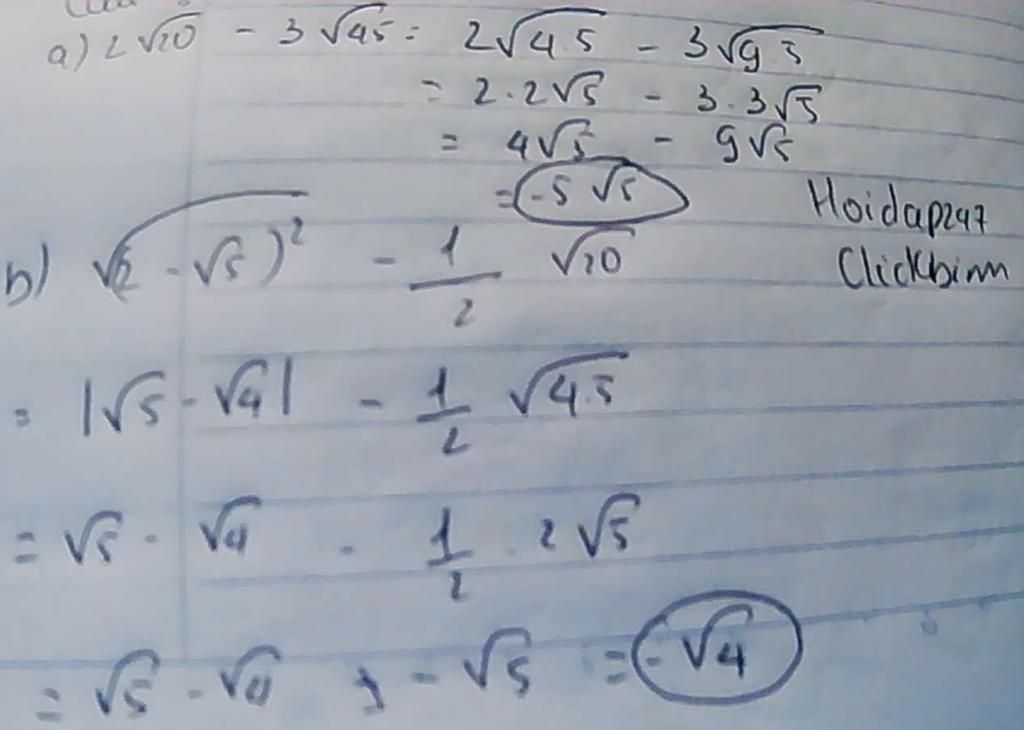 a) 2√20 - 3√45 = 2√4.5 - 3√9.5
= 2.2√5 - 3.3√5
= 4√5 - 9√5
= -5√5
Hoidap247
Clickbinm
b) √(2 - √5)² - 1/2 √20
= |√5 - √4| - 1/2 √4.5
= √5 - √4 - 1/2 . 2√5
= √5 - √4 - √5 = -√4